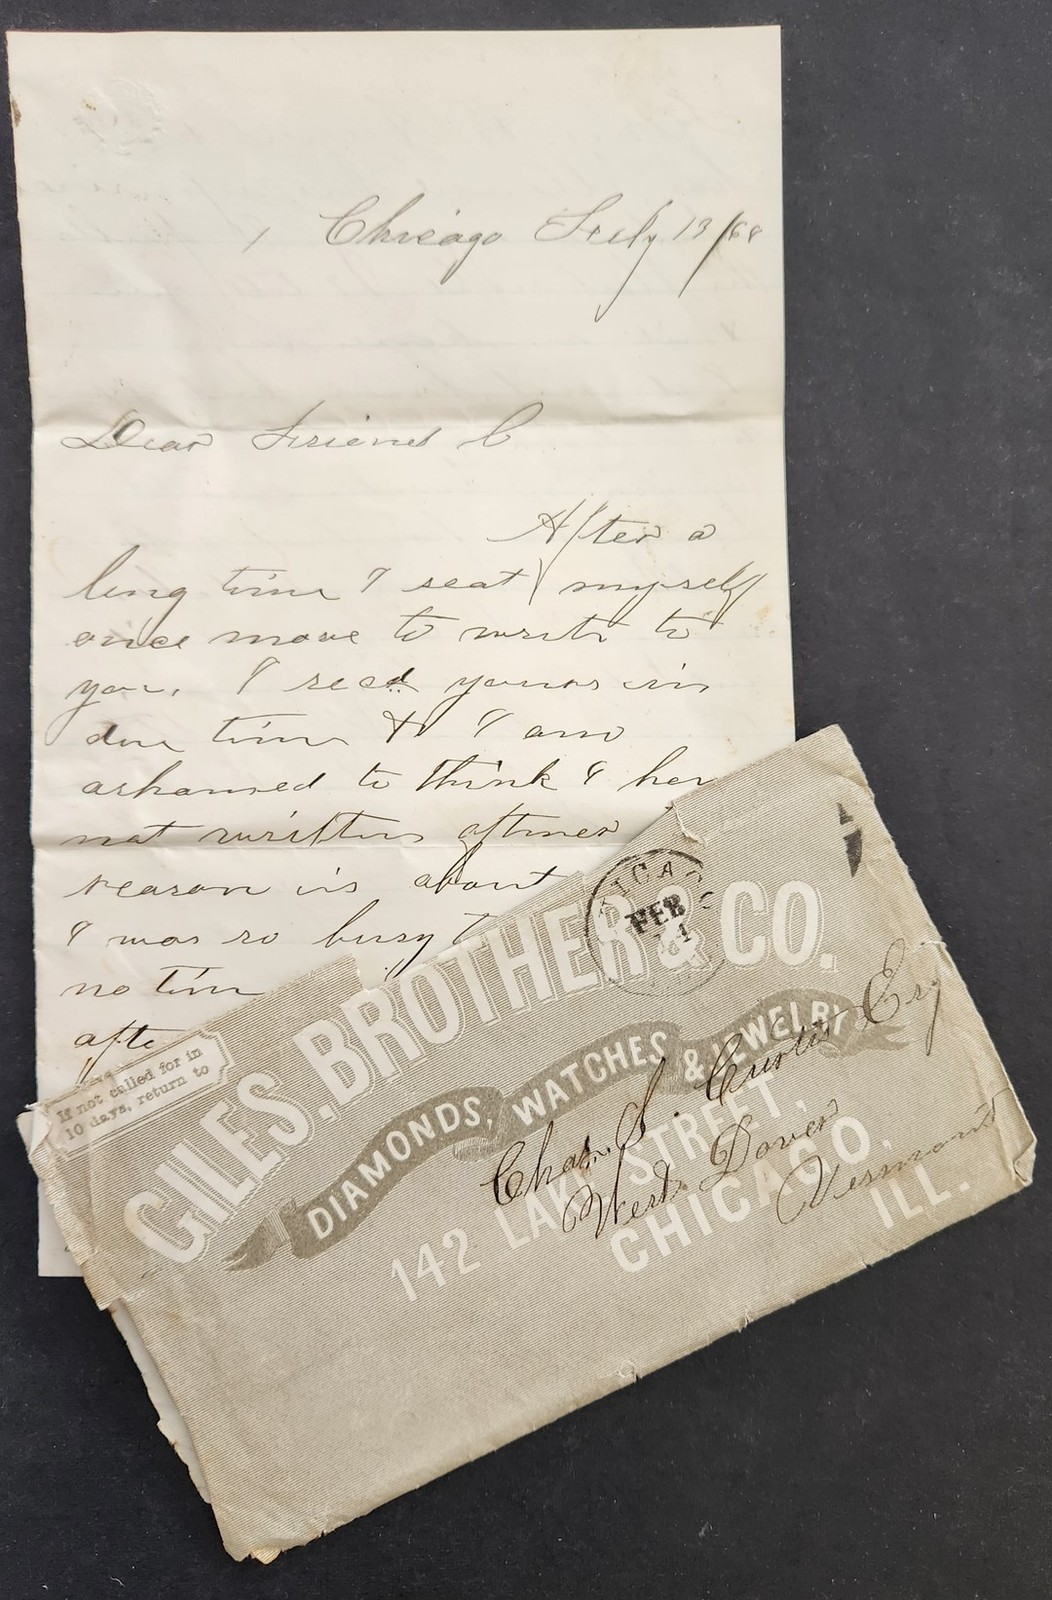 Chicago Feby 13/68
Dear Friend C
After a
long time I seat myself
once more to write to
you. I recd yours in
due time & I am
ashamed to think I hav
not written oftner
reason is about
I was so busy t
no tim
afte
CHICAGO
FEB
GILES. BROTHER & CO.
DIAMONDS, WATCHES & JEWELRY
142 LAKE STREET,
CHICAGO.
ILL.
If not called for in
10 days, return to
Chas. S. Curtis Esq
West Dover
Vermont